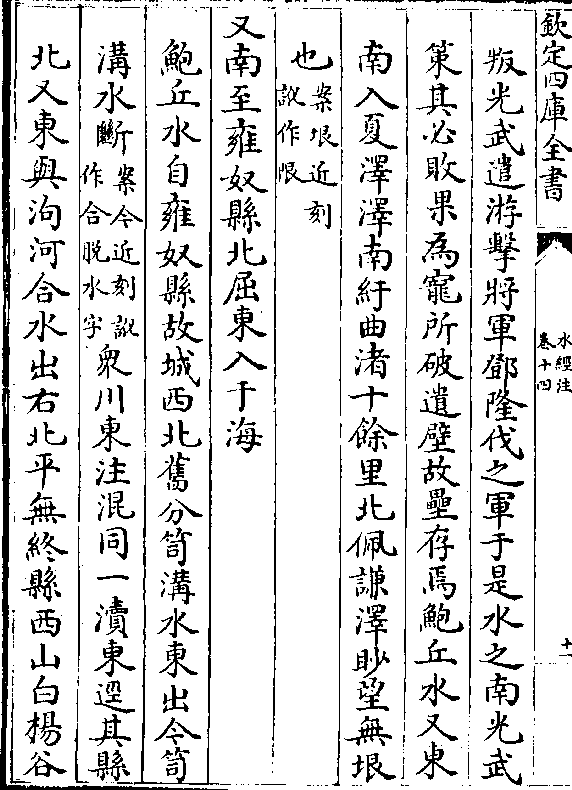 欽定四庫全書
水經注
卷十四
十一
叛光武遣游擊將軍鄧隆伐之軍于是水之南光武
策其必敗果為寵所破遺壁故壘存焉鮑丘水又東
南入夏澤澤南紆曲渚十餘里北佩謙澤眇望無垠
也案垠近刻訛作限
又南至雍奴縣北屈東入于海
鮑丘水自雍奴縣故城西北舊分笥溝水東出今笥
溝水斷案今近刻訛作合脫水字衆川東注混同一瀆東逕其縣
北又東與泃河合水出右北平無終縣西山白楊谷